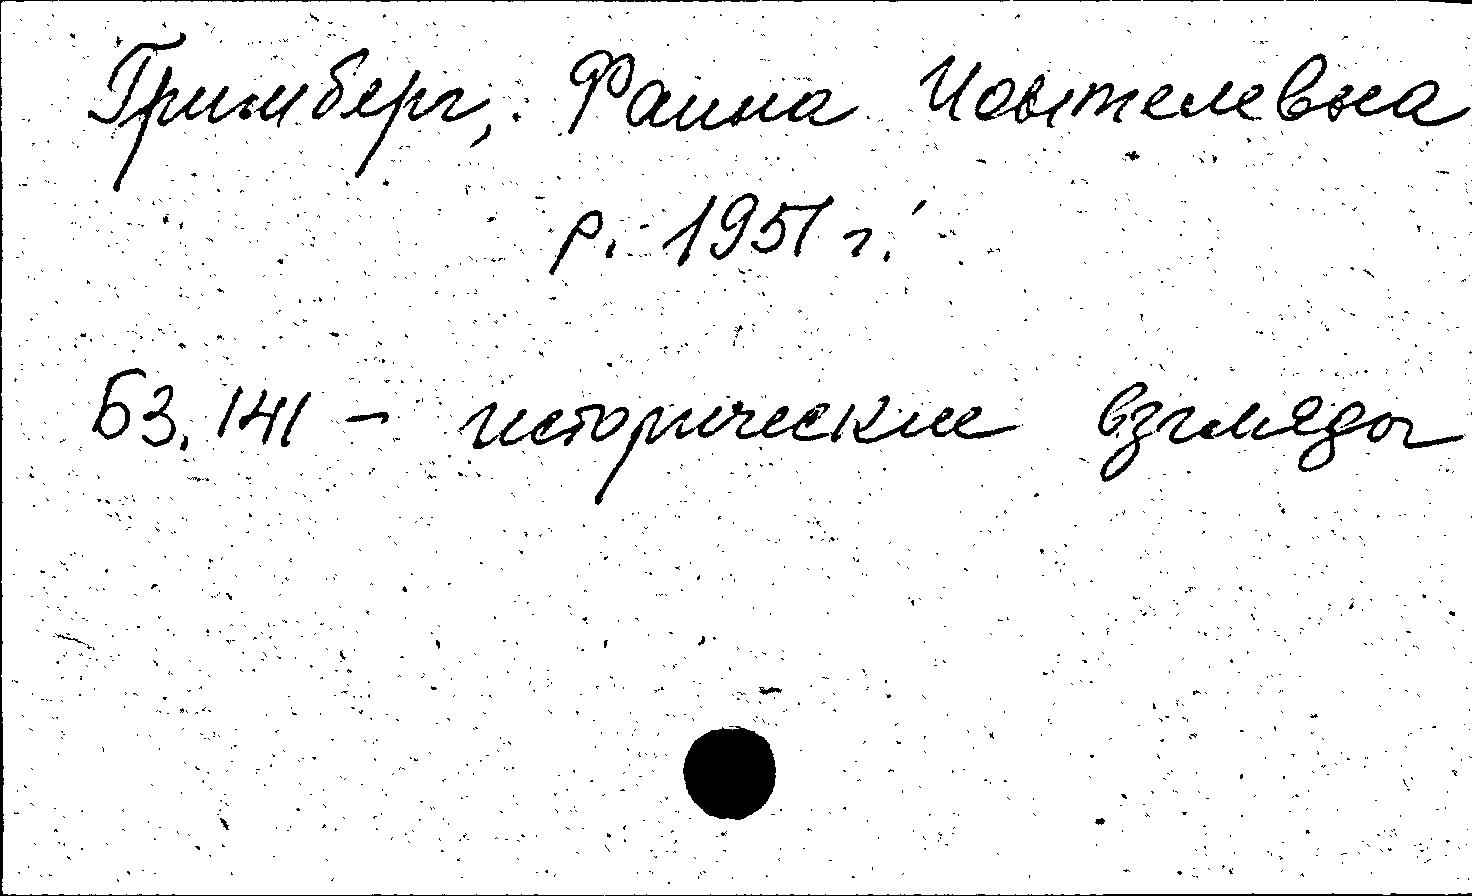 Гримберг, Фаина Ионтелевна
р. 1951 г.
63.141 – исторические взгляды